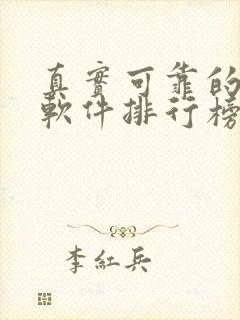 真實可靠的
軟件排行榜
李紅兵